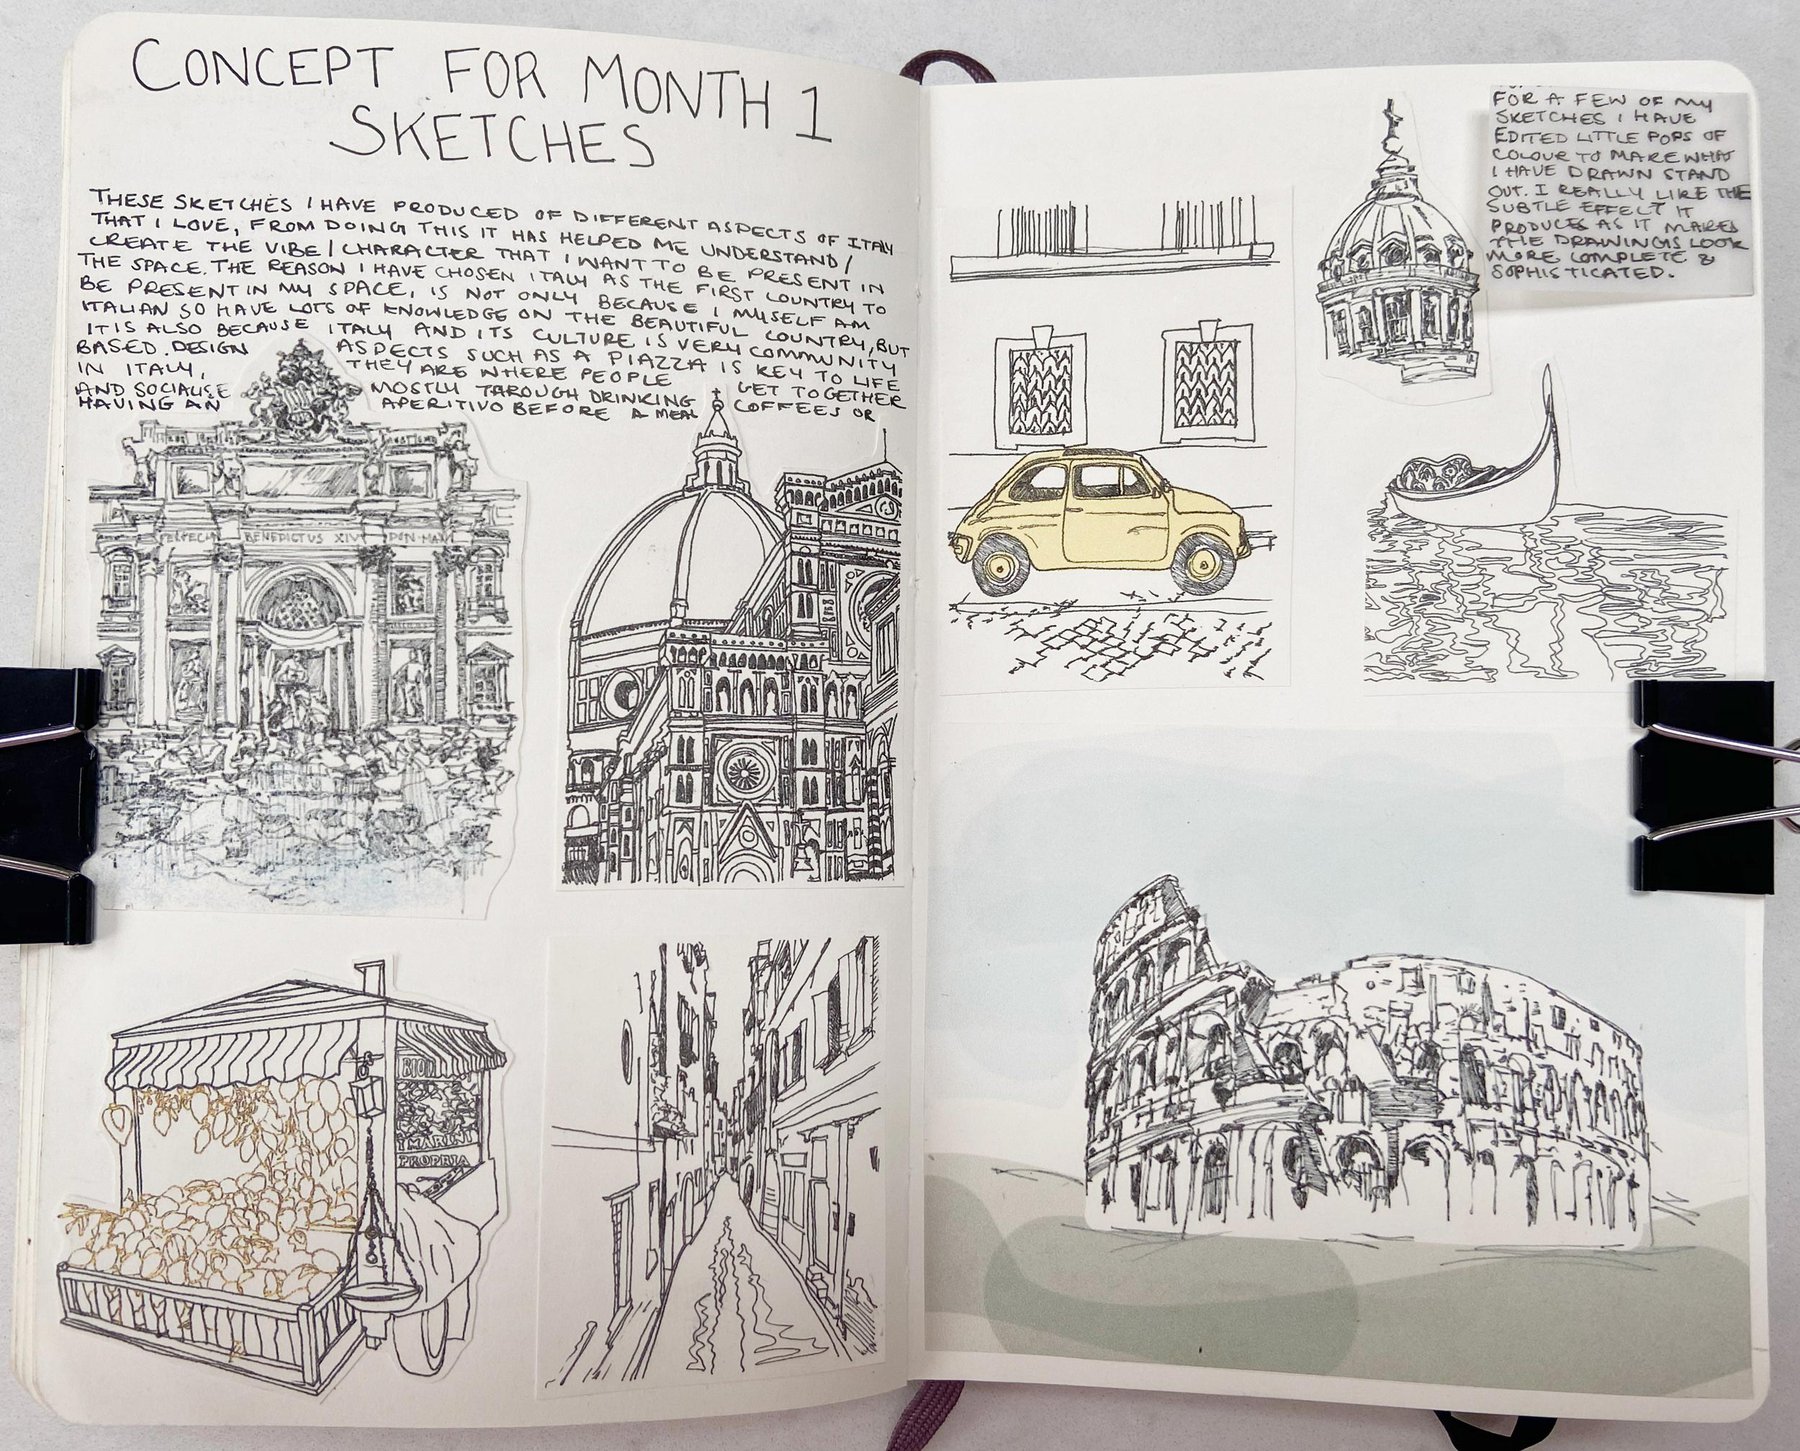 CONCEPT FOR MONTH 1
SKETCHES
THESE SKETCHES I HAVE PRODUCED OF DIFFERENT ASPECTS OF ITALY
THAT I LOVE, FROM DOING THIS IT HAS HELPED ME UNDERSTAND/
CREATE THE VIBE/CHARACTER THAT I WANT TO BE PRESENT IN
THE SPACE. THE REASON I HAVE CHOSEN ITALY AS THE FIRST COUNTRY TO
BE PRESENT IN MY SPACE, IS NOT ONLY BECAUSE I MYSELF AM
ITALIAN SO HAVE LOTS OF KNOWLEDGE ON THE BEAUTIFUL COUNTRY, BUT
IT IS ALSO BECAUSE ITALY AND ITS CULTURE IS VERY COMMUNITY
BASED. DESIGN ASPECTS SUCH AS A PIAZZA IS KEY TO LIFE
IN ITALY, THEY ARE WHERE PEOPLE GET TOGETHER
AND SOCIALISE MOSTLY THROUGH DRINKING COFFEES OR
HAVING AN APERITIVO BEFORE A MEAL
BENEDICTUS XIV PON MAX
RION
MARINI
PROPRIA
FOR A FEW OF MY
SKETCHES I HAVE
EDITED LITTLE POPS OF
COLOUR TO MAKE WHAT
I HAVE DRAWN STAND
OUT. I REALLY LIKE THE
SUBTLE EFFECT IT
PRODUCES AS IT MAKES
THE DRAWINGS LOOK
MORE COMPLETE &
SOPHISTICATED.